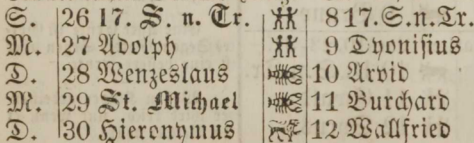 S. 26 17. S. n. Tr. 8 17. S. n. Tr.
M. 27 Adolph 9 Dyonisius
D. 28 Wenzeslaus 10 Arvid
M. 29 St. Michael 11 Burchard
D. 30 Hieronymus 12 Wallfried